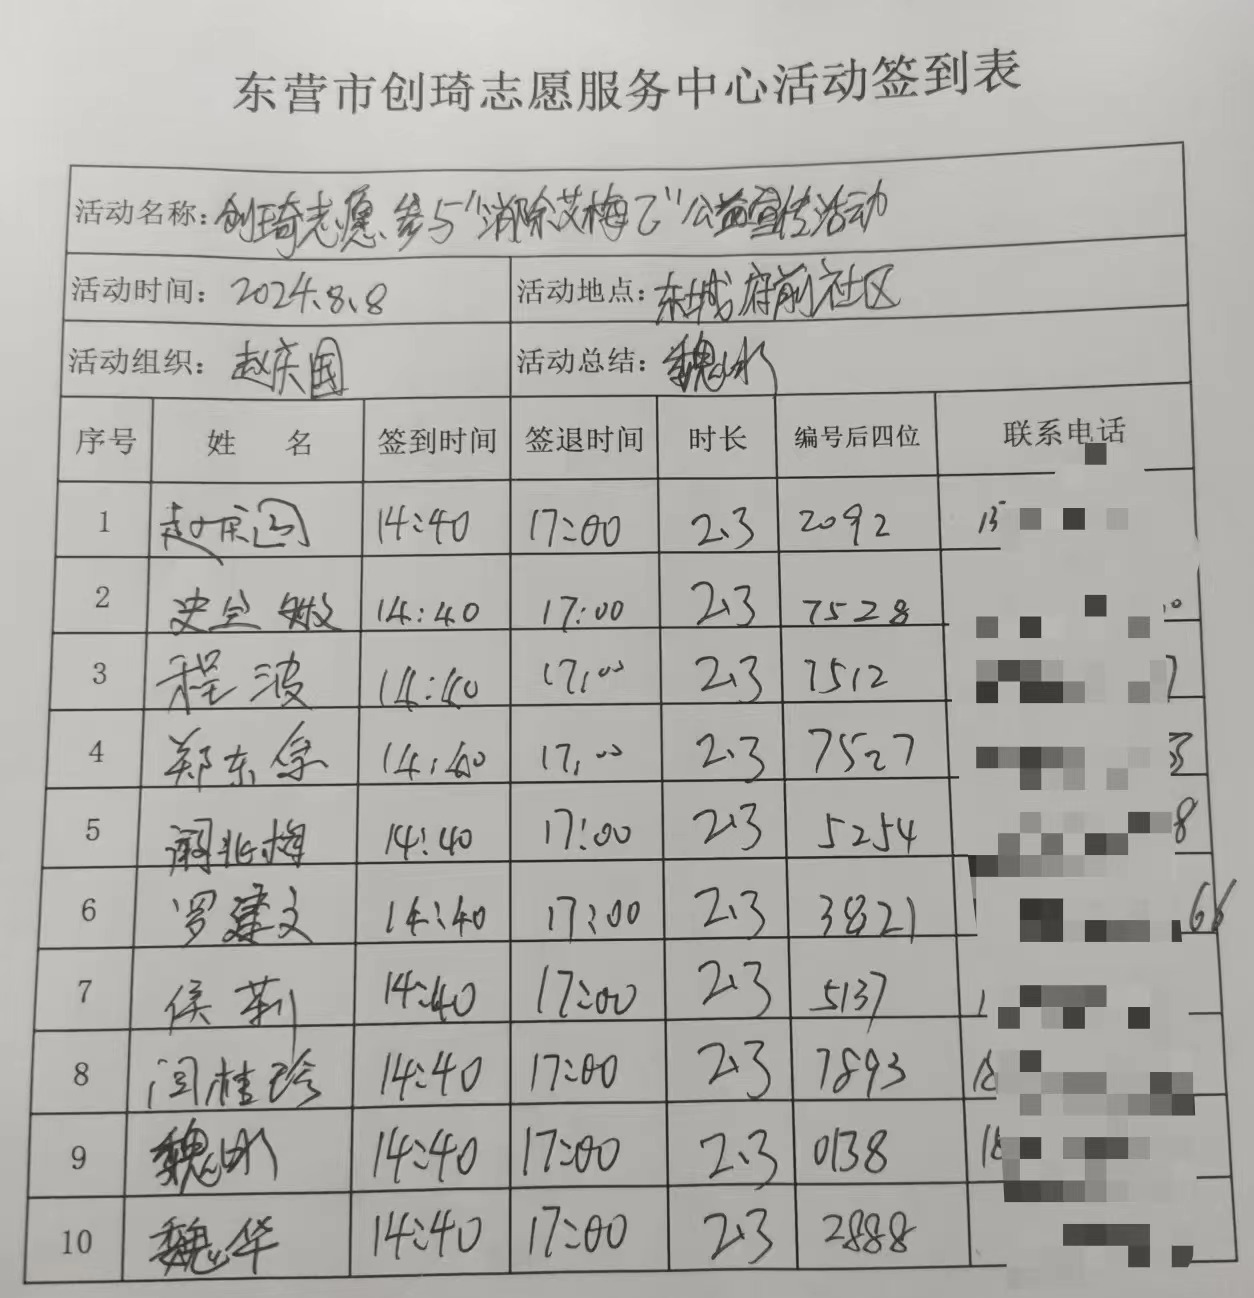 东营市创琦志愿服务中心活动签到表
活动名称：创琦志愿参与“消除艾梅乙”公益宣传活动
活动时间：2024.8.8 活动地点：东城府前社区
活动组织：赵庆国 活动总结：魏冰
序号 姓 名 签到时间 签退时间 时长 编号后四位 联系电话
1 赵庆国 14:40 17:00 2.3 2092
2 14:40 17:00 2.3 7528
3 程波 14:40 17:00 2.3 7512
4 郑东 14:40 17:00 2.3 7527
5 14:40 17:00 2.3 5254
6 罗建文 14:40 17:00 2.3 3821
7 侯莉 14:40 17:00 2.3 5137
8 闫桂珍 14:40 17:00 2.3 7893
9 魏冰 14:40 17:00 2.3 0138
10 魏华 14:40 17:00 2.3 2888